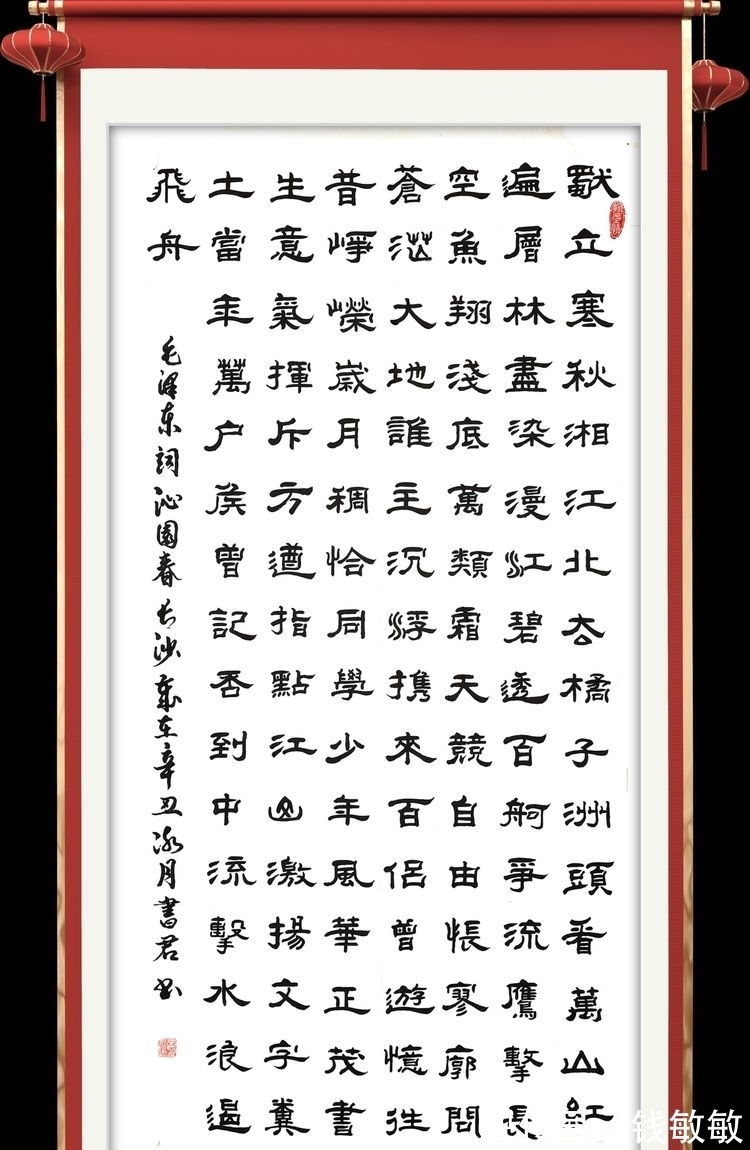 獨立寒秋湘江北去橘子洲頭看萬山紅
遍層林盡染漫江碧透百舸爭流鷹擊長
空魚翔淺底萬類霜天競自由悵寥廓問
蒼茫大地誰主沉浮携來百侣曾遊憶往
昔崢嶸歲月稠恰同學少年風華正茂書
生意氣揮斥方遒指點江山激揚文字糞
土當年萬户侯曾記否到中流擊水浪遏
飛舟
毛澤东詞沁園春长沙歲在辛丑冰月書君书
钱敏敏